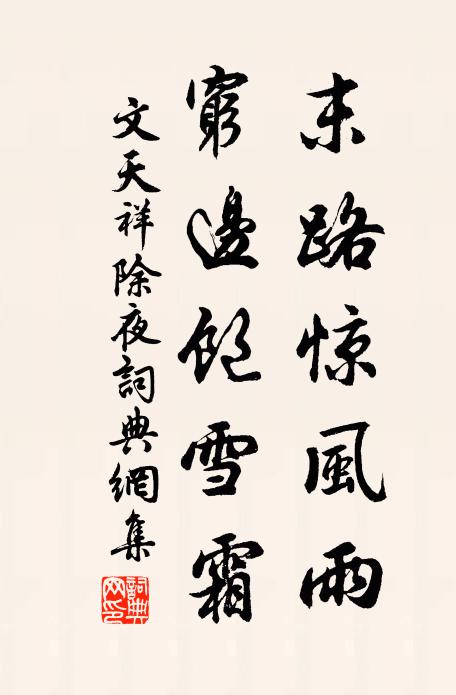 末路惊風雨
窮邊飽雪霜
文天祥除夜詞典網集
詞典網印